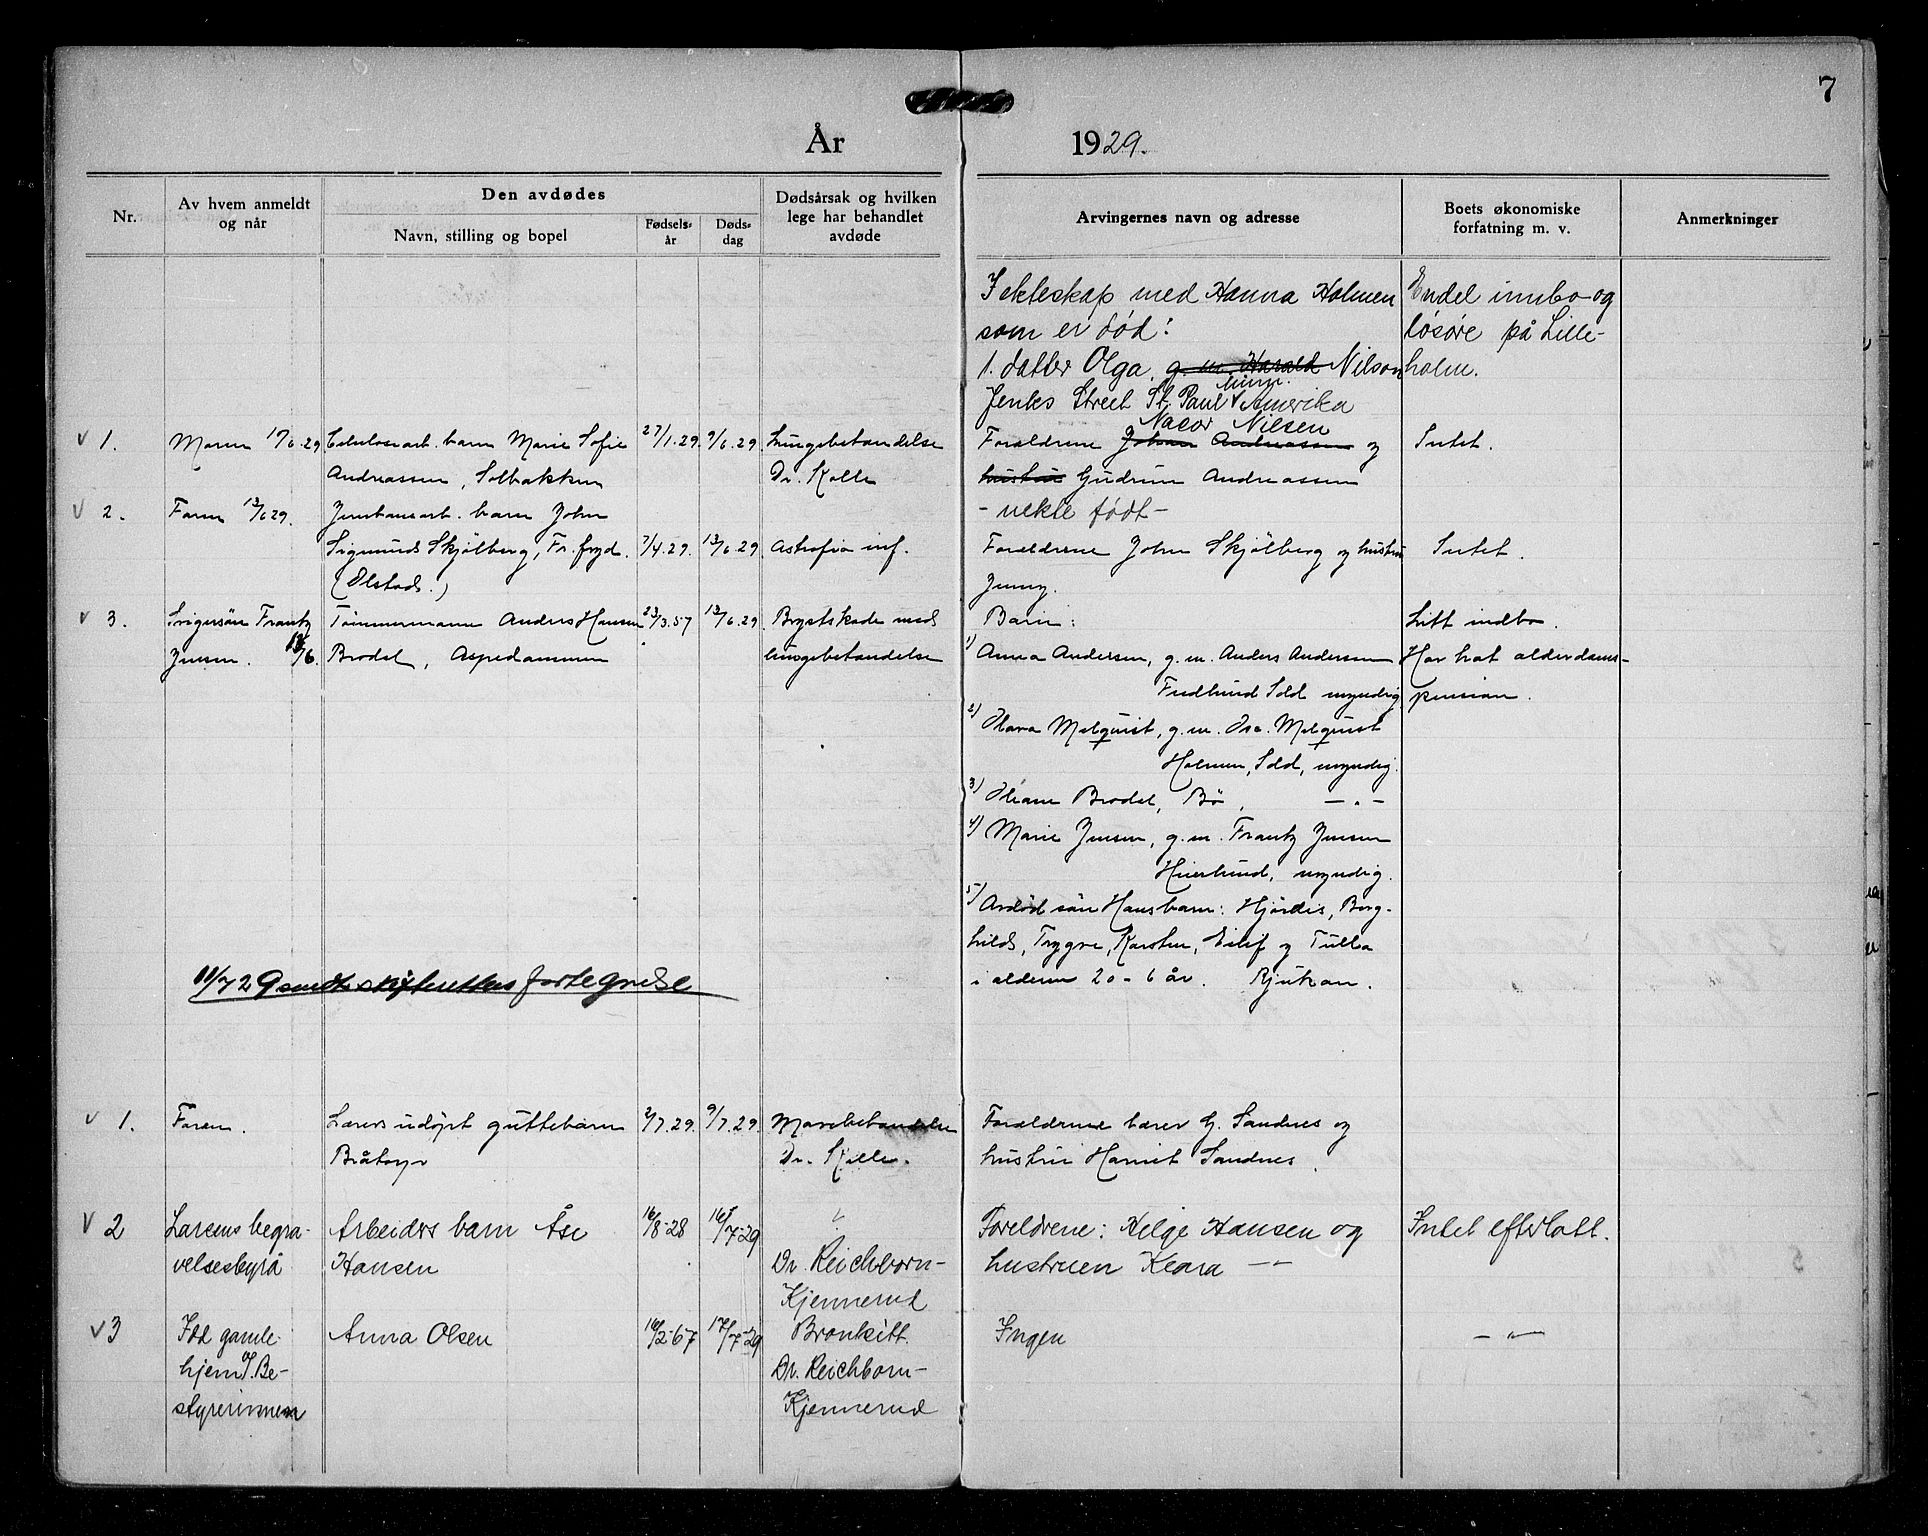 7
År 1929.
Nr.
Av hvem anmeldt
og når
Den avdødes
Navn, stilling og bopel
Fødsels-
år
Døds-
dag
Dødsårsak og hvilken
lege har behandlet
avdøde
Arvingernes navn og adresse
Boets økonomiske
forfatning m. v.
Anmerkninger
I ekteskap med Hanna Holmen
som er død:
1. datter Olga g. m. Harald Nilson
Jenks Street St. Paul Minn. Amerika
Endel innbo og
løsøre på Lille-
holm.
v 1.
Moren 17/6 29
Celuloseart. barn Marie Sofie
Andreassen, Solbakken
27/1.29.
9/6.29.
Lungebetendelse
Dr. Kolle
Nacor Nilsen
Foreldrene Johan Andreassen og
hustru Gudrun Andreassen
- uekte født -
Intet.
v 2.
Faren 13/6 29.
barn John
Sigmund Skjølberg, Fr. fryd.
(Olstad.)
7/4.29.
13/6.29
Astrofia inf.
Foreldrene John Skjølberg og hustru
Jenny.
Intet.
v 3.
Svigersøn Frantz
Jensen. 18/6.
Tømmermann Anders Hansen
Brødel, Aspedammen
23/3.57
13/6.29.
Brystskade med
lungebetendelse
Barn:
1) Anna Andersen, g. m. Anders Andersen
Fredlund Idd myndig
2) Olava Melquist, g. m. Osc. Melquist
Holmen, Idd, myndig.
3) Oleane Brødel, Bø, - " -
4) Marie Jensen, g. m. Frantz Jensen
Heierlund, myndig.
5) Avdød søn Hans barn: Hjørdis, Borg-
hild, Trygve, Karsten, Eilif og Tulla
i alderen 20 - 6 år. Rjukan.
Litt indbo.
Har hat alderdoms-
pension.
11/7 29 sendt skifterettens fortegnelse
v 1.
Faren.
Lærers udøpt guttebarn
Bråtorp
2/7.29.
9/7.29.
Mavebetendelse
Dr. Kolle.
Foreldrene lærer G. Sandnes og
hustru Harriet Sandnes.
v 2
Larsens begra-
velsesbyrå
Arbeiders barn Åse
Hansen
16/8-28
16/7-29
?
Dr. Reichborn-
Kjennerud
Foreldrene: Helge Hansen og
hustruen Klara - " -
Intet efterlatt.
v 3
Idd gamle-
hjem v/ Be-
styrerinnen
Anna Olsen
16/2-67
17/7-29
Bronkitt.
Dr. Reichborn-
Kjennerud
Ingen
- " -